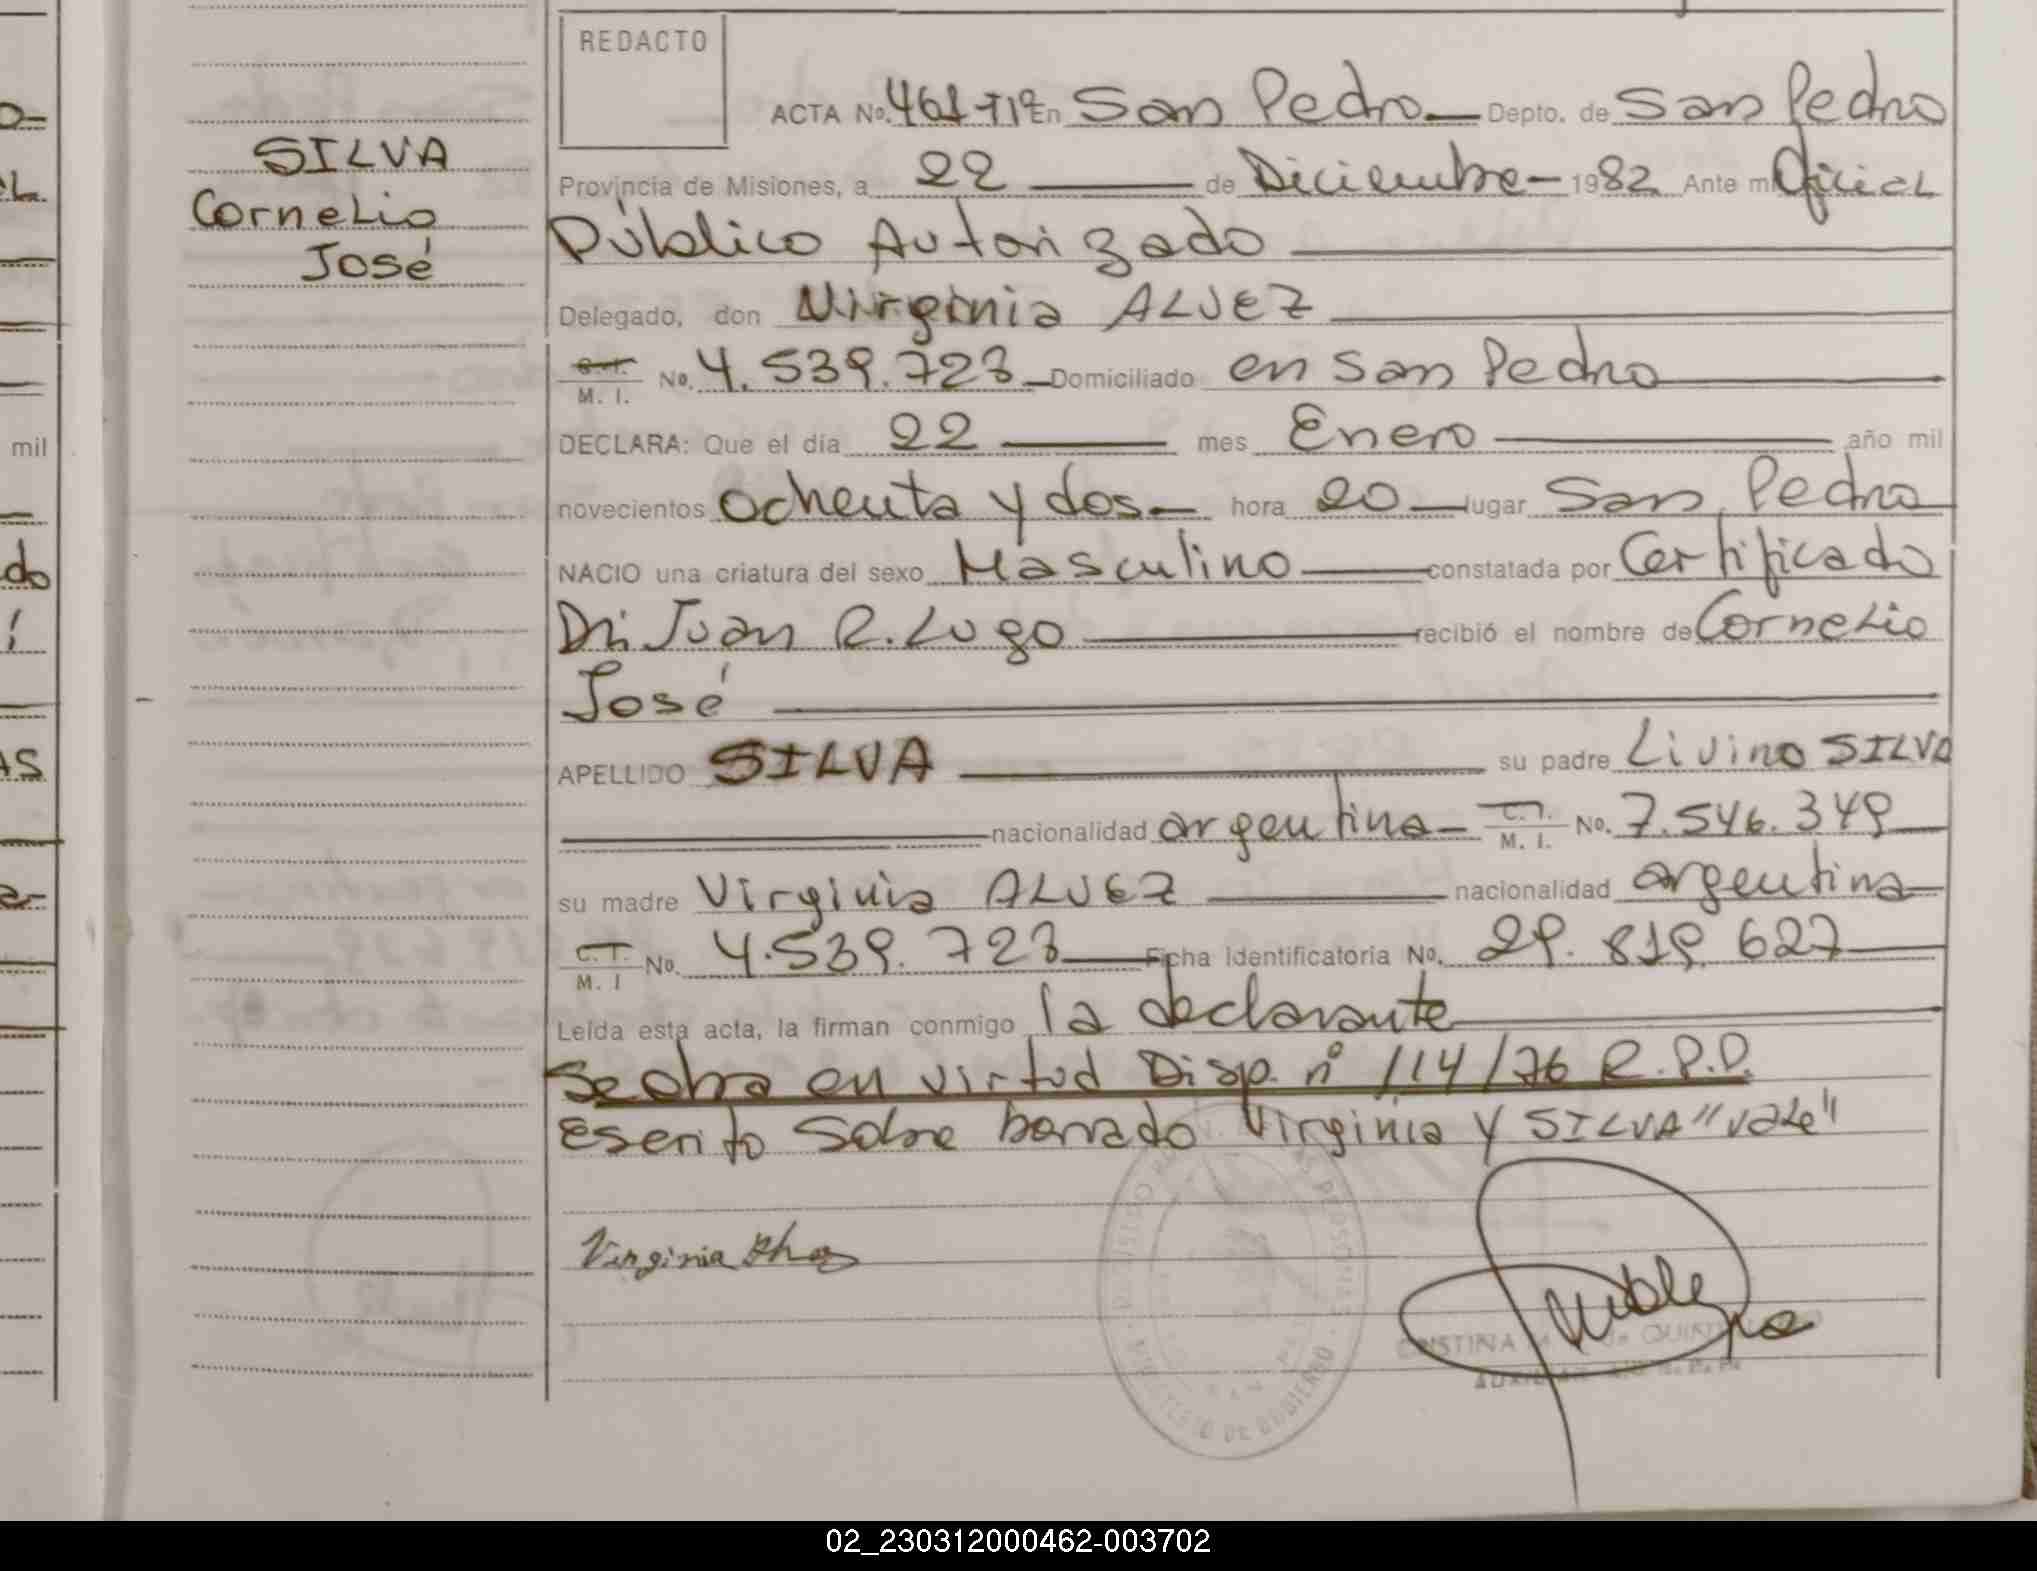 REDACTO
ACTA No. 461-TIº En San Pedro Depto. de San Pedro
Provincia de Misiones, a 22 de Diciembre 1982 Ante mi Oficial
Público Autorizado
Delegado, don Virginia ALVEZ
C.I. M. I. No. 4.539.723 Domiciliado en San Pedro
DECLARA: Que el día 22 mes Enero año mil
novecientos ochenta y dos hora 20 lugar San Pedro
NACIO una criatura del sexo Masculino constatada por Certificado
Dr. Juan R. Lugo recibió el nombre de Cornelio
José
APELLIDO SILVA su padre Livino SILVA
nacionalidad argentina C.I. M. I. No. 7.546.349
su madre Virginia ALVEZ nacionalidad argentina
C.I. M. I No. 4.539.723 Ficha Identificatoria No. 29.819.627
Leída esta acta, la firman conmigo la declarante
Se obra en virtud Disp. nº 114/76 R.P.P.
Escrito sobre borrado Virginia y SILVA "Vale"
Virginia
SILVA
Cornelio
José
mil
do
AS
MINISTERIO DE GOBIERNO
CRISTINA
02_230312000462-003702